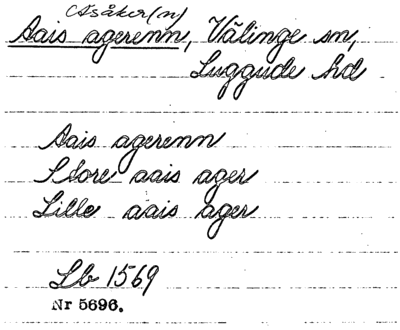 Åsåker(n)
Aais agerenn, Välinge sn,
Luggude hd
Aais agerenn
Store aais ager
Lille aais ager
Lb 1569
Nr 5696.